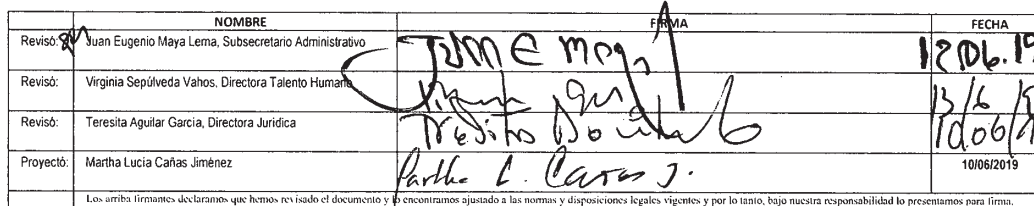 NOMBRE FIRMA FECHA
Revisó: Juan Eugenio Maya Lema, Subsecretario Administrativo 12.06.19
Revisó: Virginia Sepúlveda Vahos, Directora Talento Humano 13/6/19
Revisó: Teresita Aguilar García, Directora Jurídica Teresita 10.06/19
Proyectó: Martha Lucía Cañas Jiménez Martha L. Cañas J. 10/06/2019
Los arriba firmantes declaramos que hemos revisado el documento y lo encontramos ajustado a las normas y disposiciones legales vigentes y por lo tanto, bajo nuestra responsabilidad lo presentamos para firma.